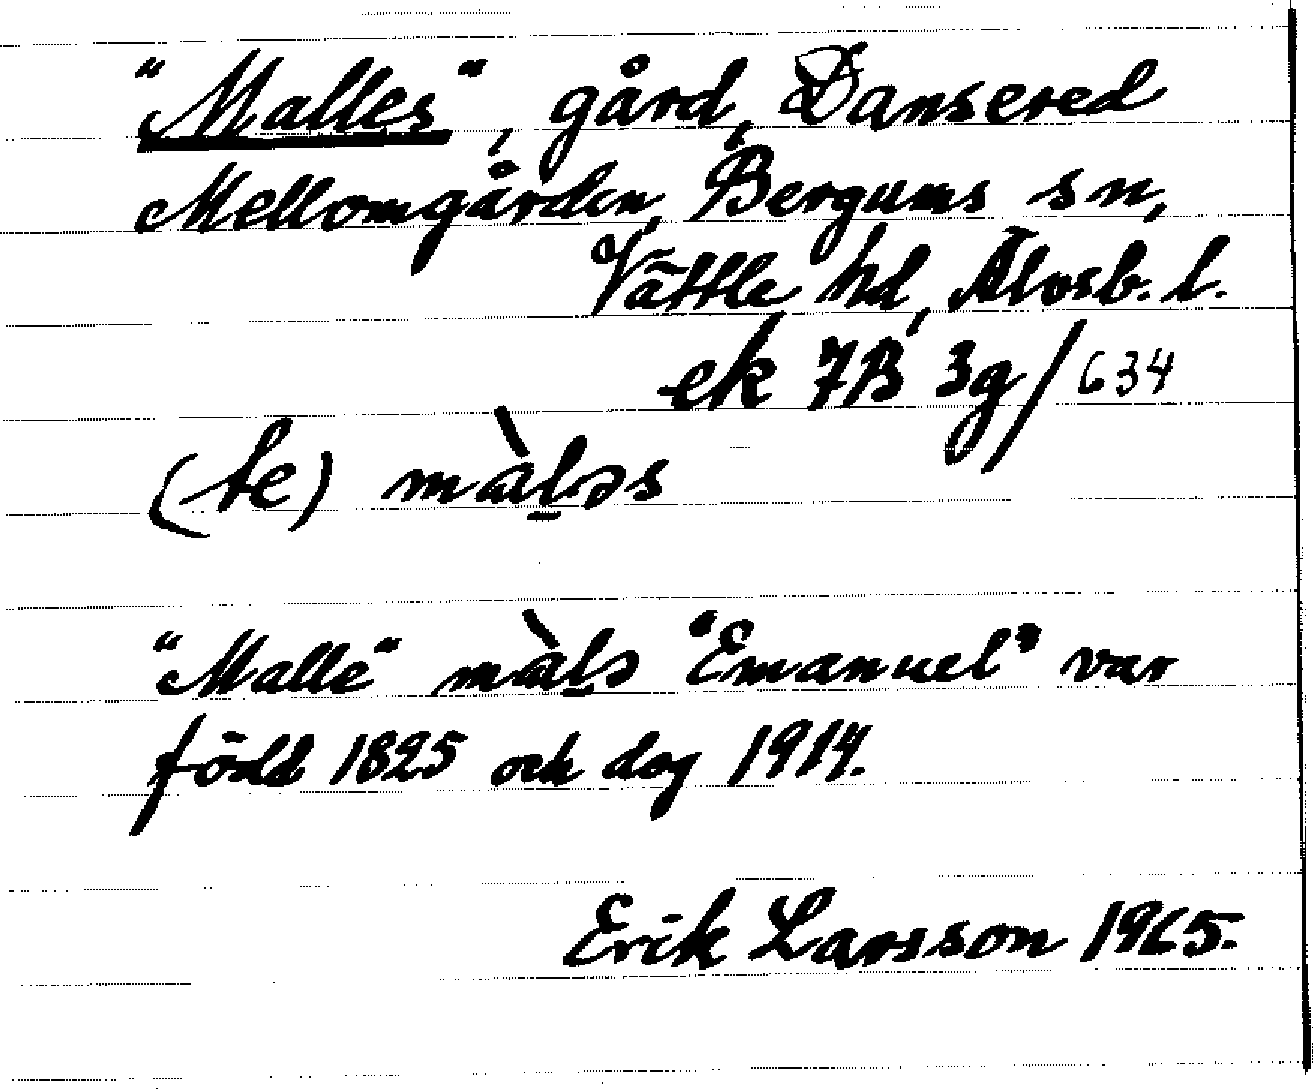 "Malles", gård, Dansered
Mellomgården, Bergums sn,
Vättle hd, Älvsb. l.
ek 7B 3g/634
(te) màl̠əs
"Malle" màl̠ə "Emanuel" var
född 1825 och dog 1914.
Erik Larsson 1965.